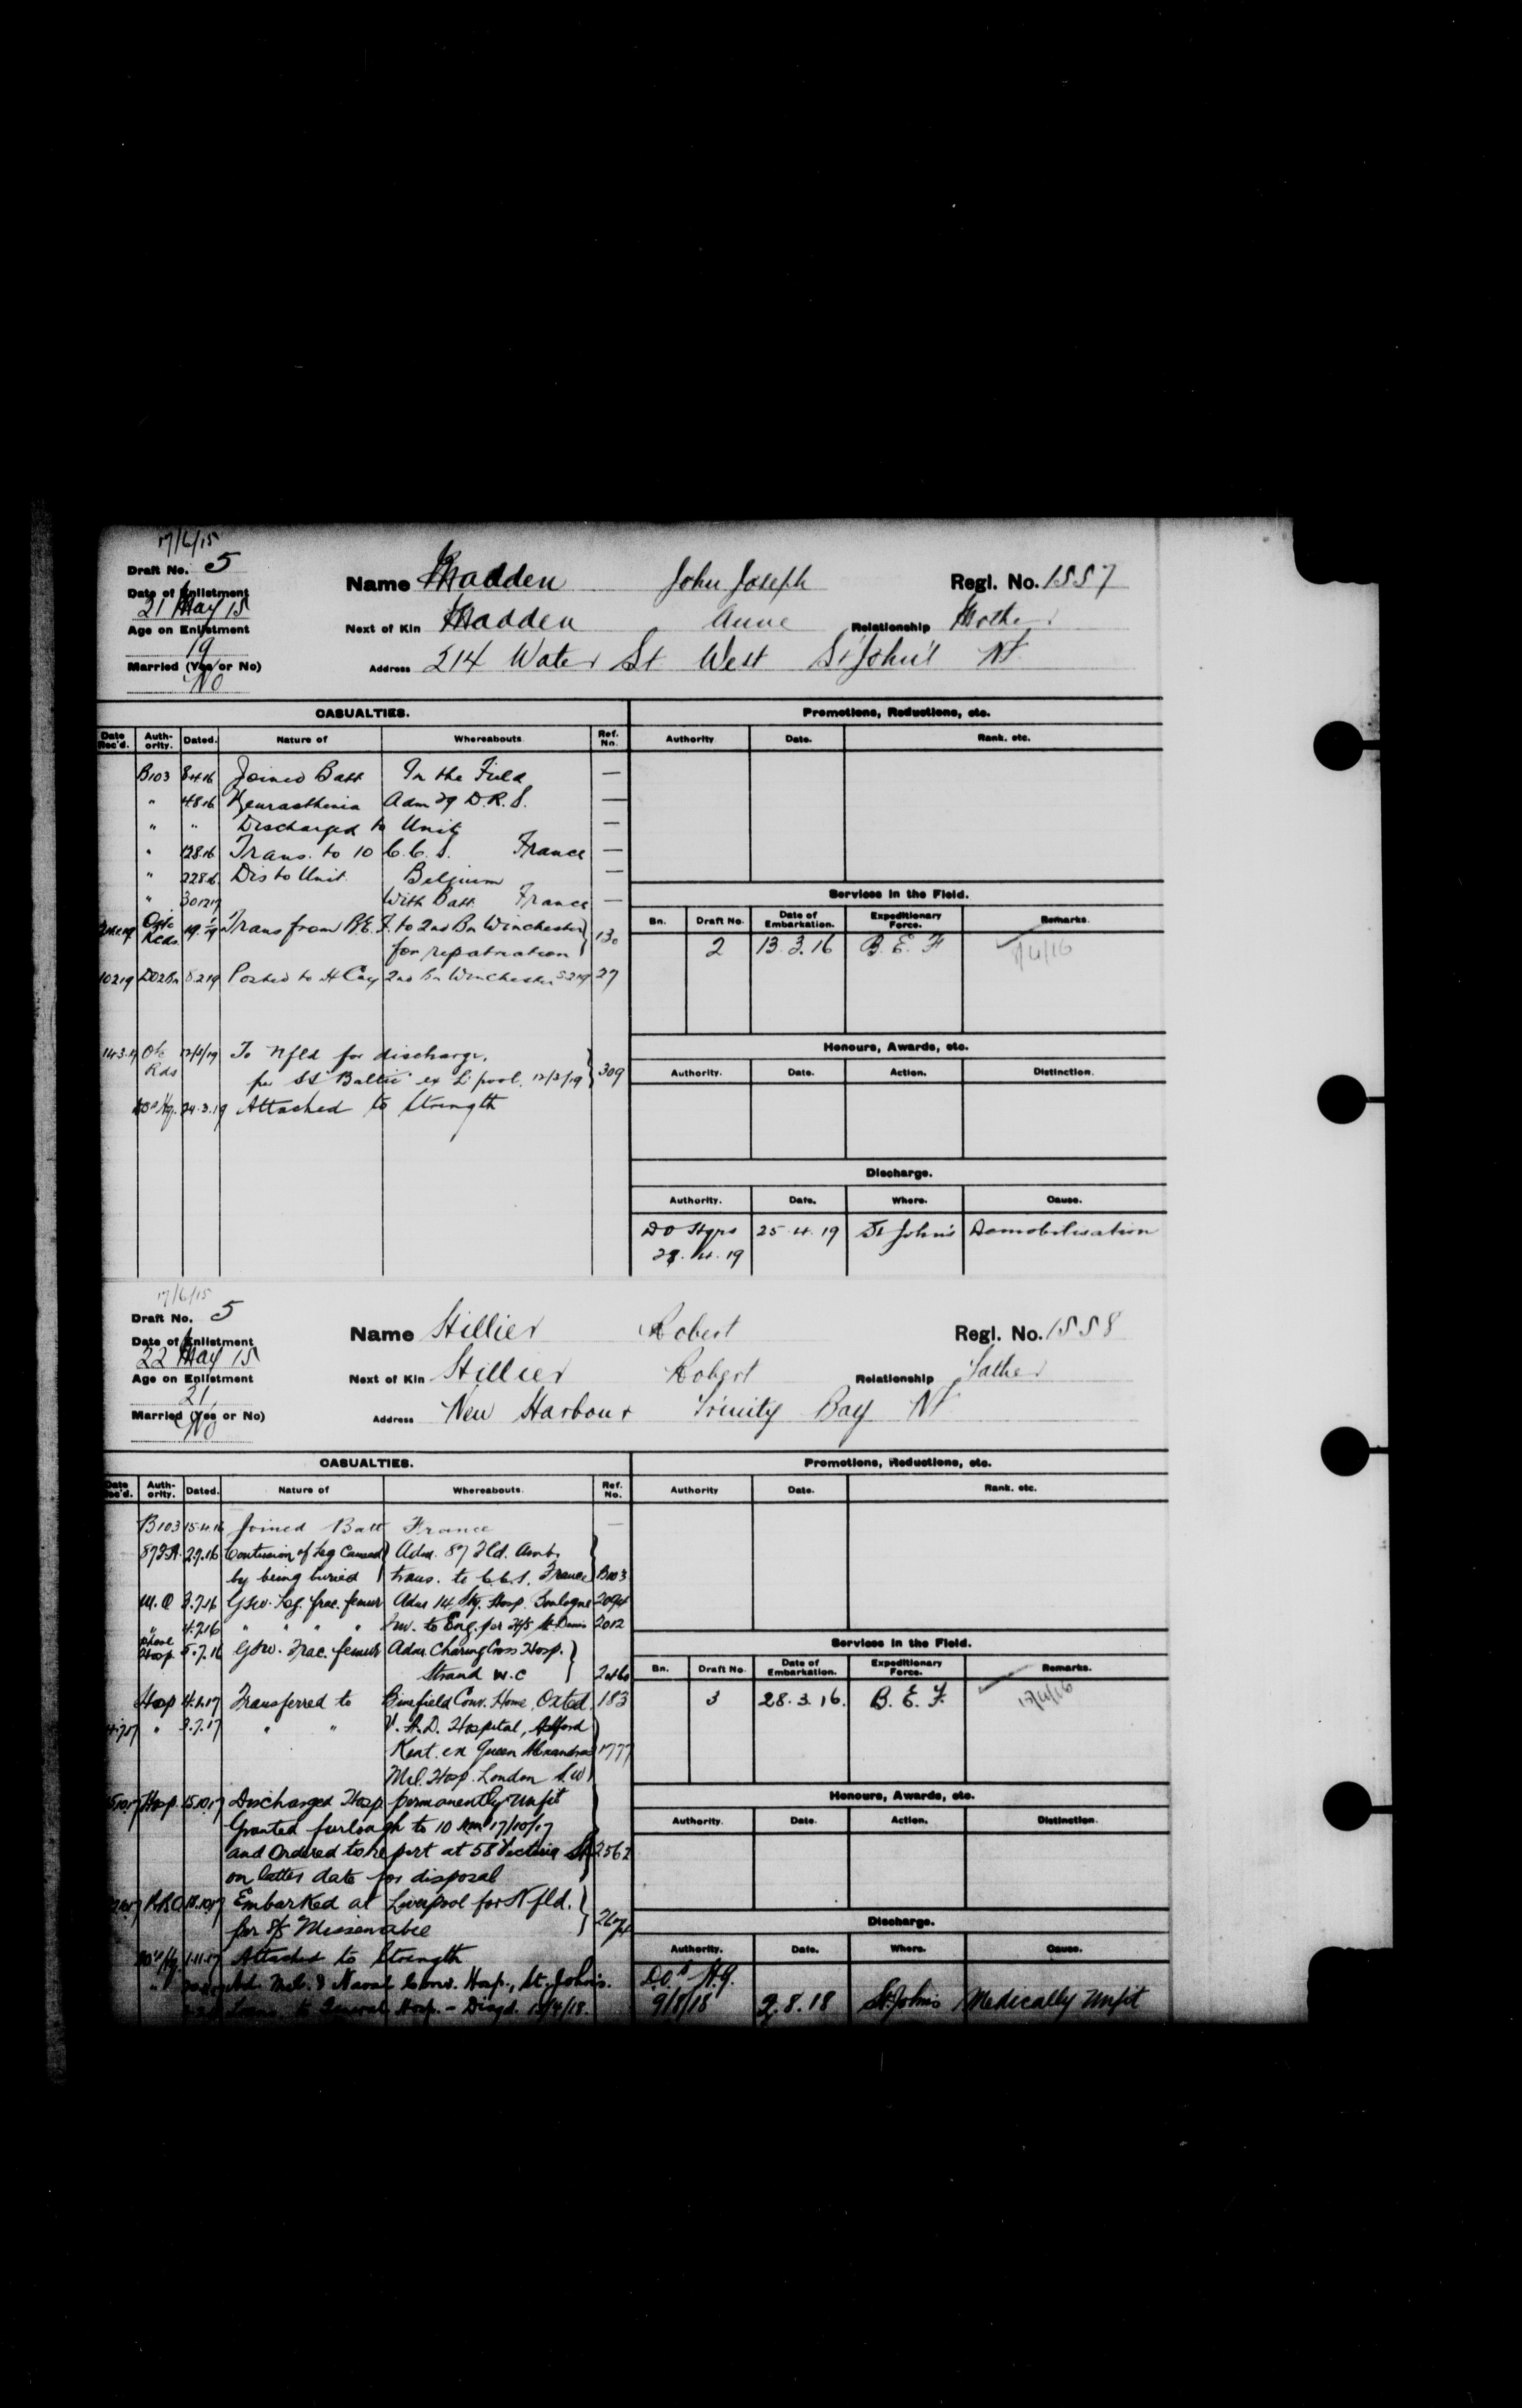 17/6/15
Draft No. 5
Date of Enlistment
21 May 15
Age on Enlistment
19
Married (Yes or No)
No
Name Madden John Joseph Regl. No. 1557
Next of Kin Madden Anne Relationship Mother
Address 214 Water St West St John's Nf
CASUALTIES.
Date Rec'd. Auth-ority. Dated. Nature of Whereabouts Ref. No.
B103 8416 Joined Batt In the Field —
" 4816 Neurasthinia Adm 29 D.R.S. —
" " Discharged to Unit —
" 12816 Trans. to 10 C.C.S. France —
" 22816 Dis to Unit. Belgium —
" 301217 With Batt France —
Rcds Trans from B.E.F. to 2nd Bn Winchester
for repatriation 130
10219 DO2Bn 8219 Posted to H Coy 2nd Bn Winchester 5219 27
14.3.19 Rds 12/3/19 To Nfld for discharge,
per SS Baltic ex L'pool. 12/3/19 309
24.3.19 Attached to Strength
Promotions, Reductions, etc.
Authority Date. Rank. etc.
Services in the Field.
Bn. Draft No. Date of Embarkation. Expeditionary Force. Remarks.
2 13.3.16 B.E.F 8/4/16
Honours, Awards, etc.
Authority. Date. Action. Distinction.
Discharge.
Authority. Date. Where. Cause.
DO Hqrs 25.4.19 St John's Demobilisation
17/6/15
Draft No. 5
Date of Enlistment
22 May 15
Age on Enlistment
21
Married (Yes or No)
No
Name Hillier Robert Regl. No. 1558
Next of Kin Hillier Robert Relationship Father
Address New Harbour Trinity Bay Nf
CASUALTIES.
Date Rec'd. Auth-ority. Dated. Nature of Whereabouts. Ref. No.
B103 15.4.16 Joined Batt France —
87F.A. 2.7.16 Contusion of Leg Caused Adm. 87 Fld. Amb.
by being buried trans. to C.C.S. France B103
3.7.16 GSW. Leg. frac. femur Adm 14 Hosp. Boulogne 2094
" 4.7.16 " " " " Inv. to Eng. per H/S St. Denis 2012
Hosp. 5.7.16 GSW. Frac. femur Adm. Charing Cross Hosp.
Strand W.C
Hosp 4.1.17 Transferred to Conv. Home, Oxted. 183
" 3.7.17 " " V.A.D. Hospital, Ashford
Kent. ex Queen Alexandras 1777
Mil. Hosp. London S.W
Hosp. 15.10.17 Discharged Hosp. permanently unfit
Granted furlough to 10 Am 17/10/17
and Ordered to report at 58 Victoria St
on latter date for disposal
Embarked at Liverpool for Nfld.
per S/S Missenabie
1.11.17 Attached to Strength
Adm. Mil. & Naval Conv. Hosp., St. John's.
Trans. to General Hosp. – Disgd. 12/4/18.
Promotions, Reductions, etc.
Authority Date. Rank. etc.
Services in the Field.
Bn. Draft No. Date of Embarkation. Expeditionary Force. Remarks.
3 28.3.16. B.E.F.
Honours, Awards, etc.
Authority. Date. Action. Distinction.
Discharge.
Authority. Date. Where. Cause.
D.O. H.Q.
9/8/18 9.8.18 St. John's Medically Unfit